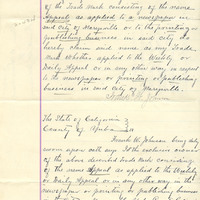 of the Trade Mark consisting of the name
Appeal as applied to a newspaper in
said City of Marysville or to the printing or
publishing business in said City do
hereby claim said name as my Trade
Mark whether applied to the Weekly or
Daily Appeal or in any other way in respect
to the newspaper or printing or publishing
business in said City of Marysville.
The State of California
County of Yuba
Frank H. Johnson being duly
sworn upon oath says I the exclusive owner
of the above described Trade Mark consisting
of the name Appeal as applied to the Weekly
or Daily Appeal or in any other way in the
newspaper or printing or publishing business